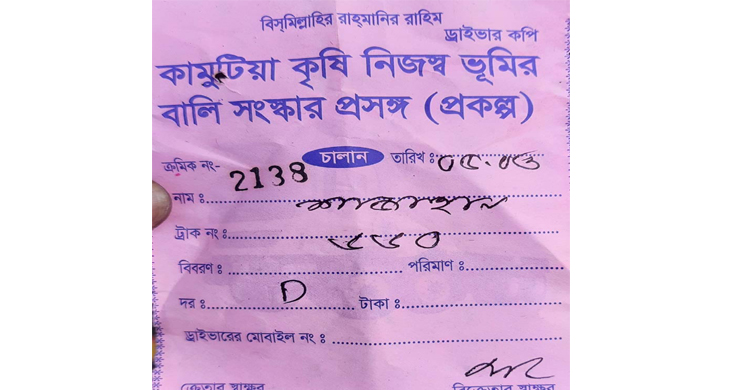 বিস্‌মিল্লাহির রাহ্‌মানির রাহিম
ড্রাইভার কপি
কামুটিয়া কৃষি নিজস্ব ভূমির
বালি সংস্কার প্রসঙ্গ (প্রকল্প)
ক্রমিক নং- 2138 চালান তারিখ ঃ
নাম ঃ
ট্রাক নং ঃ
বিবরণ ঃ পরিমাণ ঃ
দর ঃ D টাকা ঃ
ড্রাইভারের মোবাইল নং ঃ
ক্রেতার স্বাক্ষর বিক্রেতার স্বাক্ষর